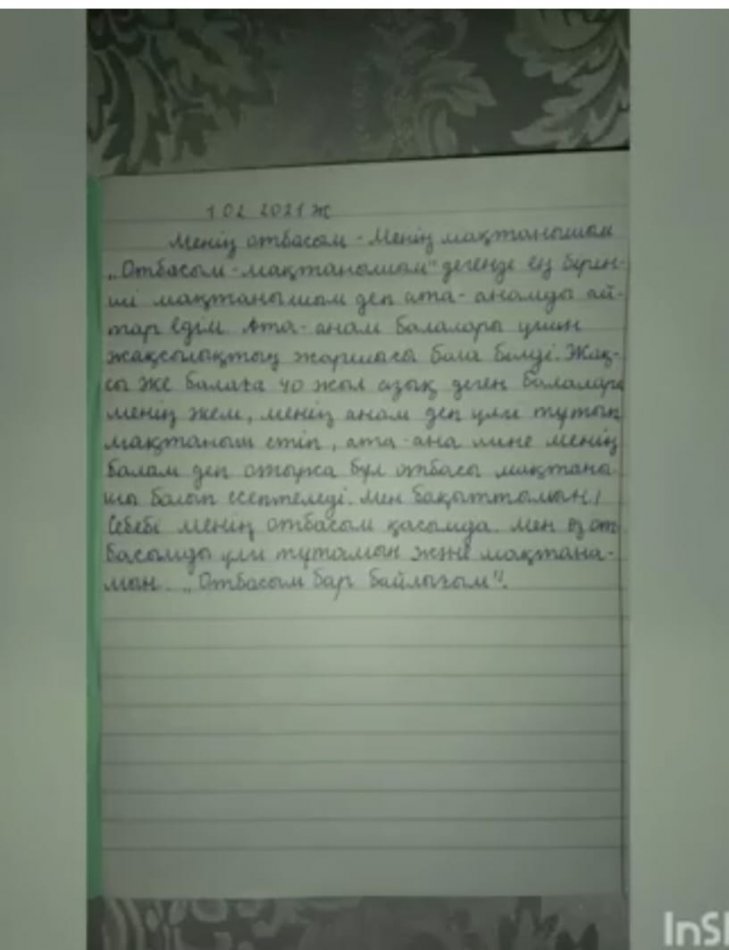 1 02 2021 ж
Менің отбасым - Менің мақтанышым
„Отбасым - мақтанышым" дегенде ең бірін-
ші мақтанышым деп ата-анамды ай-
тар едім. Ата-анам балалары үшін
жақсылықтың жаршысы бола білді. Жақ-
сы әке балаға 40 жыл азық деген балалары
менің әкем, менің анам деп үлгі тұтып
мақтаныш етіп, ата-ана міне менің
балам деп отырса бұл отбасы мақтаны-
шы болып есептеледі. Мен бақыттымын!
Себебі менің отбасым қасымда. Мен өз от
басымды үлгі тұтамын және мақтана-
мын. „Отбасым бар байлығым".
InSh